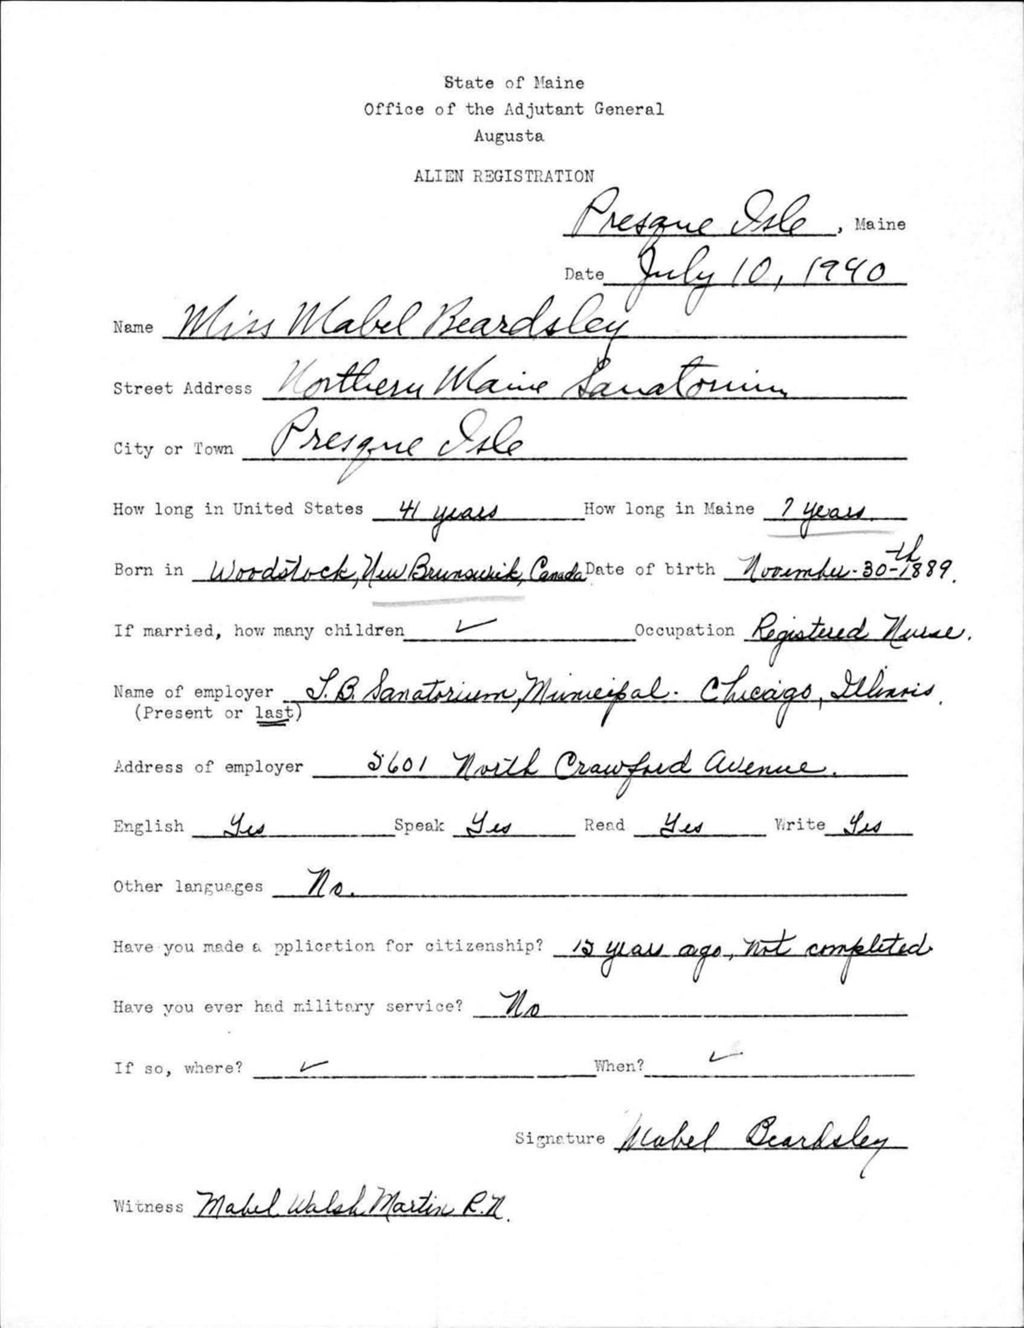 State of Maine
Office of the Adjutant General
Augusta
ALIEN REGISTRATION
Presque Isle, Maine
Date July 10, 1940
Name Miss Mabel Beardsley
Street Address Northern Maine Sanatorium
City or Town Presque Isle
How long in United States 41 years How long in Maine 7 years
Born in Woodstock, New Brunswick, Canada Date of birth November-30-th 1889.
If married, how many children ✓ Occupation Registered Nurse.
Name of employer T.B. Sanatorium, Municipal- Chicago, Illinois.
(Present or last)
Address of employer 5601 North Crawford Avenue.
English Yes Speak Yes Read Yes Write Yes
Other languages No.
Have you made a pplication for citizenship? 15 years ago, not completed
Have you ever had military service? No
If so, where? ✓ When? ✓
Signature Mabel Beardsley
Witness Mabel Walsh Martin R.N.